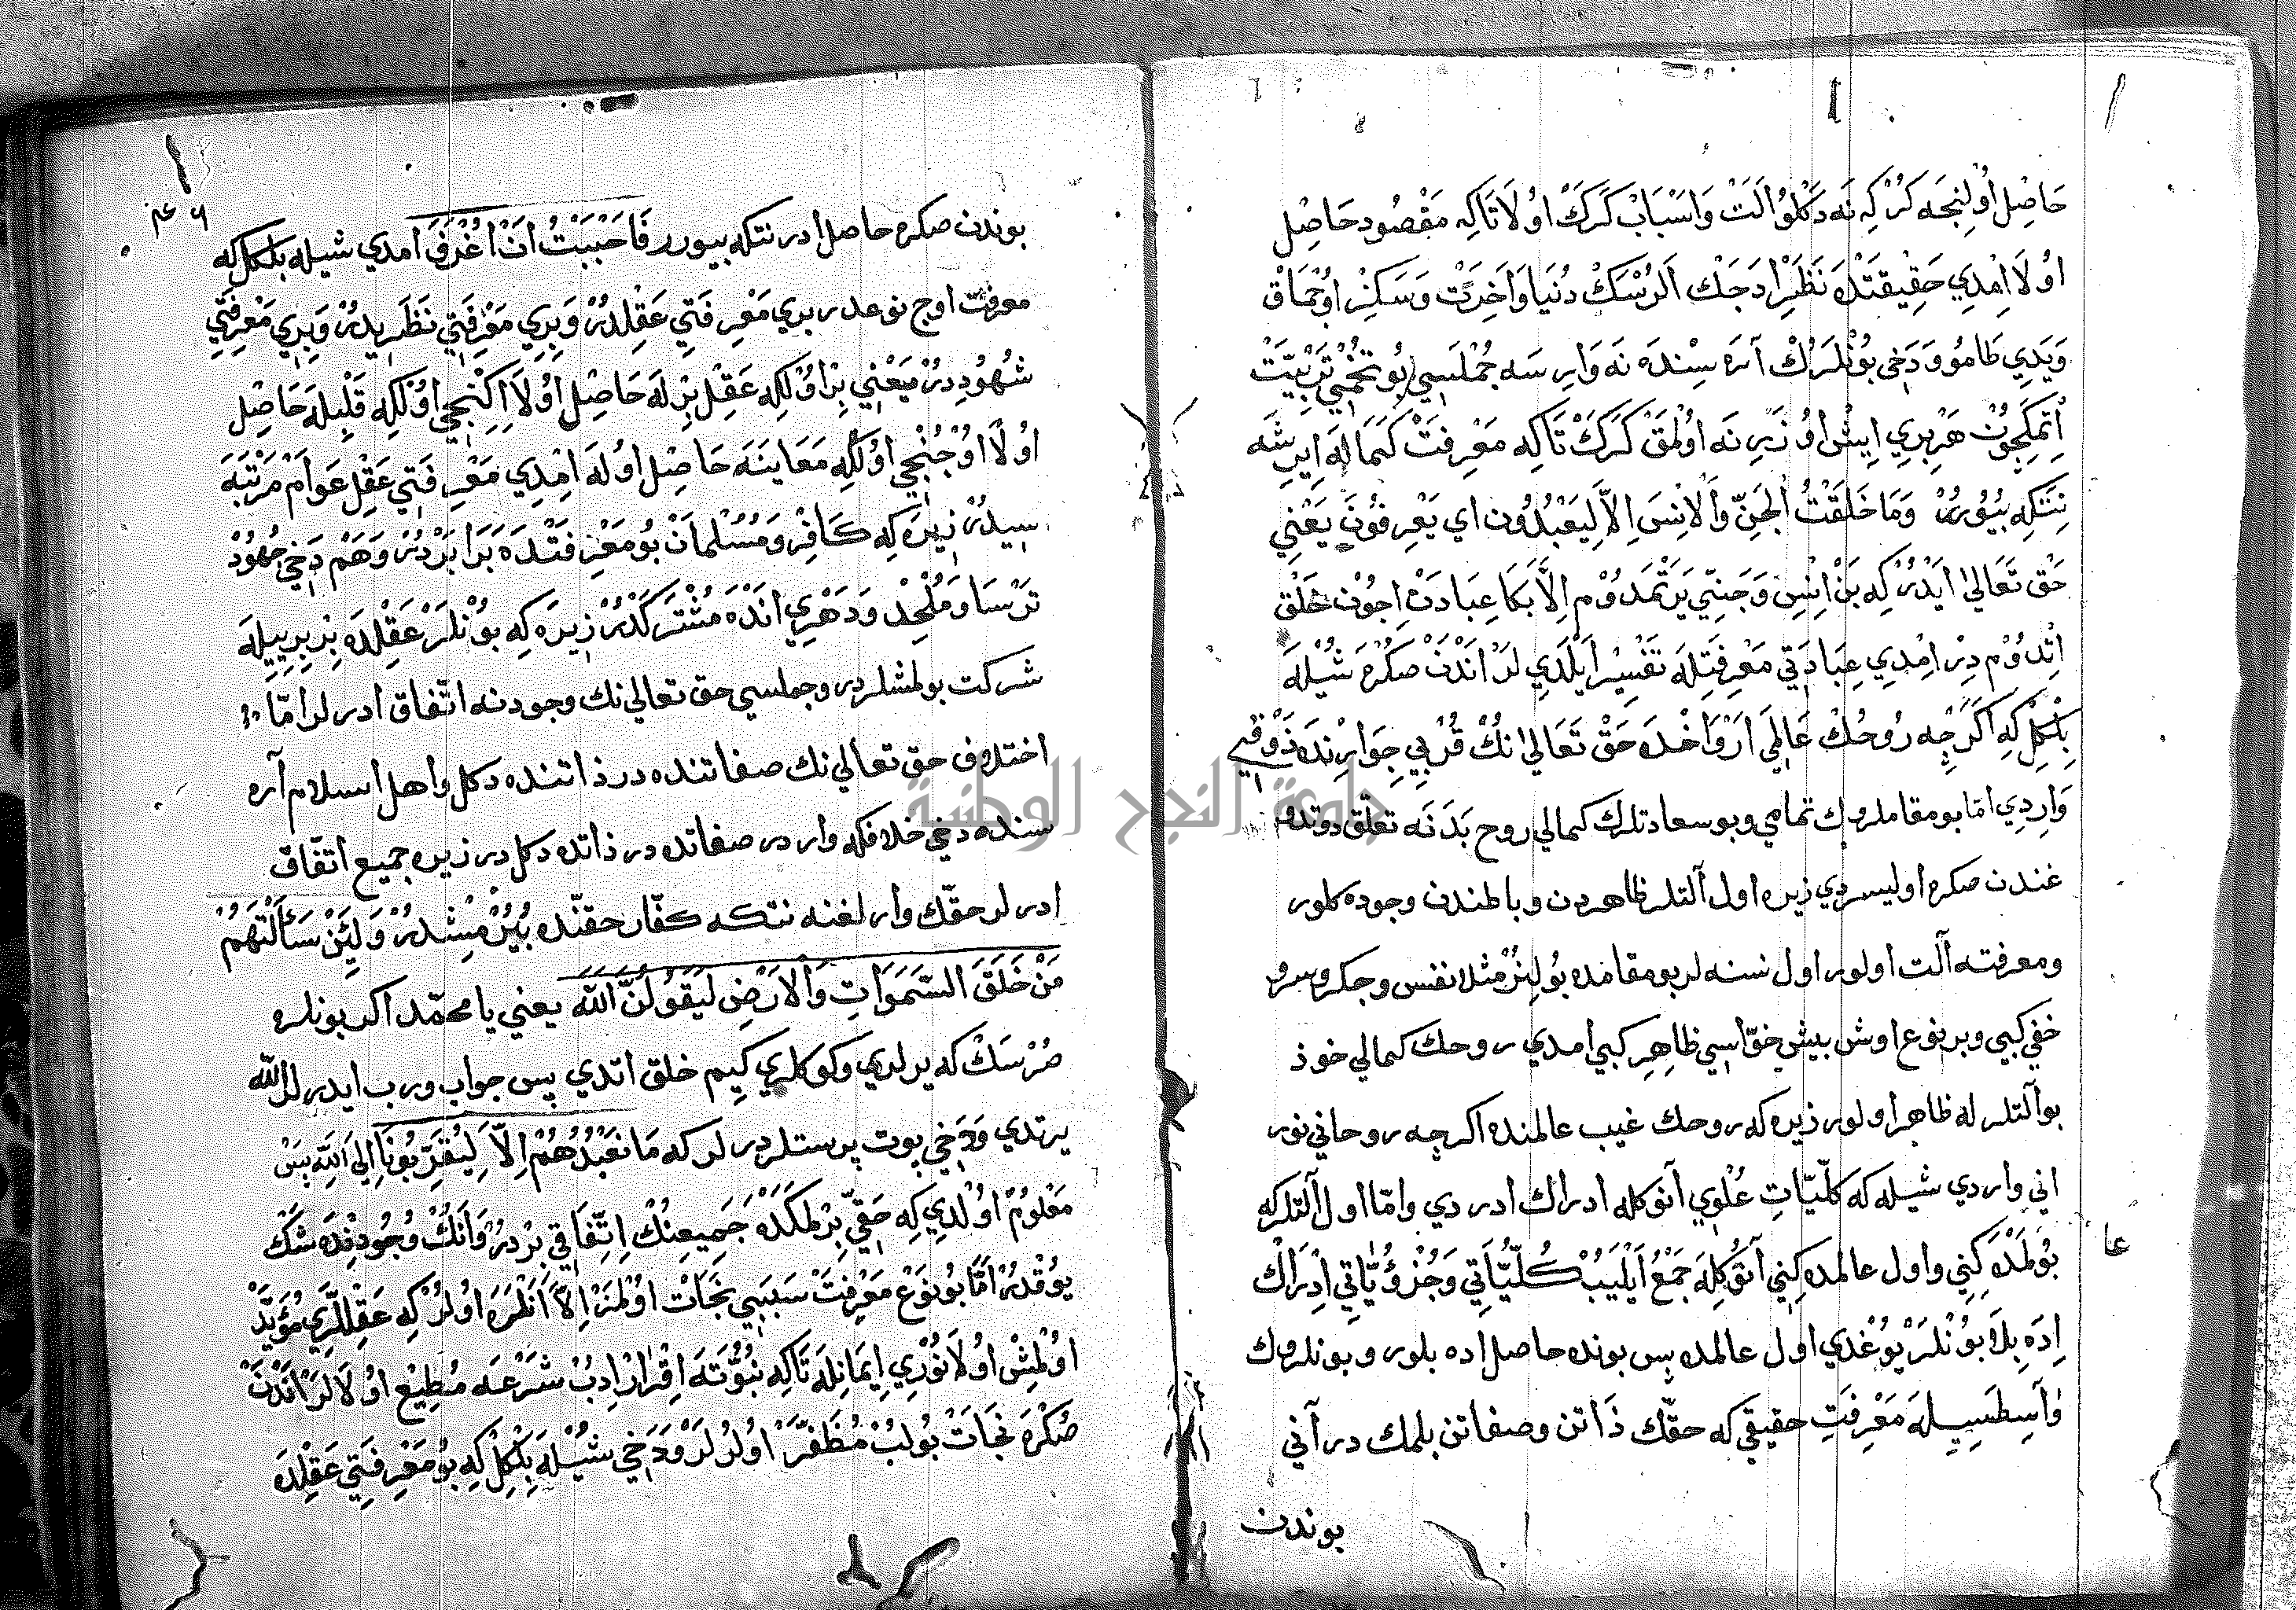 حَاصِل اُولِنجَه كَرْكِه نَه دَكْلُو اَلَتْ وَاَسْبَابْ كَرَكْ اوُلَا تَاكِه مَقْصُود حَاصِل
اوُلَا اِمْدِي حَقِيقَتْدَه نَظَرْ اِدَجَكْ اَلُرْسَكْ دُنيَا وَاَخِرَتْ وَسَكِزْ اوُجْمَاقْ
وَيَدِي طَامُو وَدَخِي بُونْلَرُكْ آرَه سِنْدَه نَه وَارِسَه جُمْلَسِي بُو تُخْمِي تَرْبِيَتْ
اِتمَكِجُونْ هَرْبِرِي اِيشْ اوُزَرِنَه اوُلْمَقْ كَرَكْ تَاكِه مَعْرِفَتْ كَمَالَه اِيرِشَه
نِتَكِه بُيُورُرْ وَمَا خَلَقْتُ الْجِنَّ وَالْاِنسَ اِلَّا لِيَعْبُدُون اي يَعْرِفُونَ يَعْنِي
حَق تَعَالىٰ اَيْدُرْ كِه بَنْ اِنْسِ وَجِنّي يَرَتْمَدُوْم اِلَّا بَكَا عِبَادَتْ اِجُونْ خَلْق
اِتِدُوْم دِرْ اِمْدِي عِبَادَتي مَعْرِفَتِلَه تَفْسِيْر اَيْلَدِي لَرْ اَنْدَنْ صَكْرَه شُيْلَه
بِلْكِلْ كِه اَكَرْچِه رُوحُكْ عَالَمِ اَرْوَاحْدَه حَقْ تَعَالىٰ نُكْ قُرْبِي جِوَارِنْدَه ذَوْقي
وَارِدِي امّا بو مقاملروك تمامي وبو سعادتلرك كمالي روح بَدَنَه تعلّق دوتدو
غندن صكره اوليسردي زيره اول آلتلر ظاهردن وباطندن وجوده كلور
ومعرفته آلت اولور اول نسنه لر بو مقامده بُولِنُرْ مثلا نفس وجكر وسر و
خفي كبي وبر نوع اوش بيش حوّاسي ظاهِر كبي امدي روحك كمالي خود
بو آلتلر له ظاهر اولور زيره كه روحك غيب عالمنده اكرچه روحاني نور
اني واردي شيله كه كلّيّاتِ عُلْوِي آنوكله ادراك ادردي وامّا اول آلتلر كه
بُولَمَدْه كِنِي واول عالمده كِنِي آنُوكِلَه جَمْعْ اَيْلَيَبْ كُلّيّاتي وَجُزْؤيّاتي اِدْرَاكْ
اِدَه بِلَا بُونْلَرْ يوُغدي اول عالمده پس بونده حاصل اده بلور و بونلروك
وَاسِطَسِيلَه مَعْرِفَتِ حقيقي كه حقّك ذَاتن وصفاتن بلمك در آني
بوندن
بوندن صكره حاصل ادر نتكه بيورر فَاَحْبَبْتُ اَنْ اُعْرَفَ امدي شيله بلكل كه
معرفت اوج نوعدر بري مَعْرِفَتِي عَقْلِدُرْ وَبِرِي مَعْرِفَتي نَظَرِيدُرْ وَبِرِي مَعْرِفَتي
شُهُودِدُرْ يَعْنِي بِرْ اوُلْكِه عَقِلْ بِرْلَه حَاصِلْ اوُلَا اِكِنْجِي اوُلْكِه قَلْبِلَه حَاصِلْ
اوُلَا اوُجُنْجِي اوُلْكِه مَعَاينَه حَاصِل اوُلَه اِمْدِي مَعْرِفَتي عَقِل عَوَامْ مَرْتَبَه
سِيدُرْ زِيرَه كِه كَافِرْ وَمُسُلْمَانْ بُو مَعْرِفَتْدَه بَرَابَرْدُرْ وَهَمْ دَخِي جُهُودْ
تَرْسَا وَمُلْحِدْ وَدَهْرِي اَنْدَه مُشْتَرَكْدُرْ زِيرَه كِه بُونْلَرْ عَقِلْدَه بِرِ بِرِيلَه
شركت بولمشلردر وجملسي حق تعالي نك وجودنه اتّفاق ادر لر امّا
اختلاف حق تعالي نك صفاتنده در ذاتنده دكل واهل اسلام آره
سنده دخي خلافكه وار در صفاتده در ذاتده دكل در زيره جميع اتّفاق
ادر لر حقّك وارلغنه نتكه كفّار حقنّده بُيُرْمِشْدُرْ وَلَئِنْ سَأَلْتَهُمْ
مَنْ خَلَقَ السَّمَوَاتِ وَالْاَرْضِ لَيَقُولُنَّ اَللّٰه يعني يا محمّد اكر بونلره
صُرْسَكْ كه يرلري وكوكلري كِيم خلق اتدي پس جواب ورب ايدر لر اللّٰه
يرتدي وَدَخِي پوت پرستلردرلر كه مَا نَعْبُدُهُمْ اِلَّا لِيُقَرِّبُونَا اِلَي اللّٰهِ پَسْ
مَعْلُومْ اوُلْدِي كِه حَقِّي بِرْلمَكْدَه جَمِيعِنُكْ اِتِّفَاقِي بِرْدُرْ وَاَنُكْ وُجُودِنْدَه شَكْ
يوُقْدُرْ اَمَّا بُو نَوْعْ مَعْرِفَتْ سَبَبِي نَجَاتْ اوُلْمَزْ اِلَّا اَنْلَرَه اوُلُرْ كِه عَقِلْلَرِي مُؤَيَّدْ
اوُلْمِشْ اوُلَا نوُرِي اِيمَانِلَه تَاكِه نُبُوَّتَه اِقْرَارْ اِدِبْ شَرْعَه مُطِيعْ اوُلَالَرْ اَنْدَنْ
صُكْرَه نَجَاتْ بُولُبْ مُظَفَّرْ اوُلُرْلَرْ وَدَخِي شُيْلَه بِلْكِلْ كِه بُو مَعْرِفَتي عَقِلْدَه
جامعة النجاح الوطنية